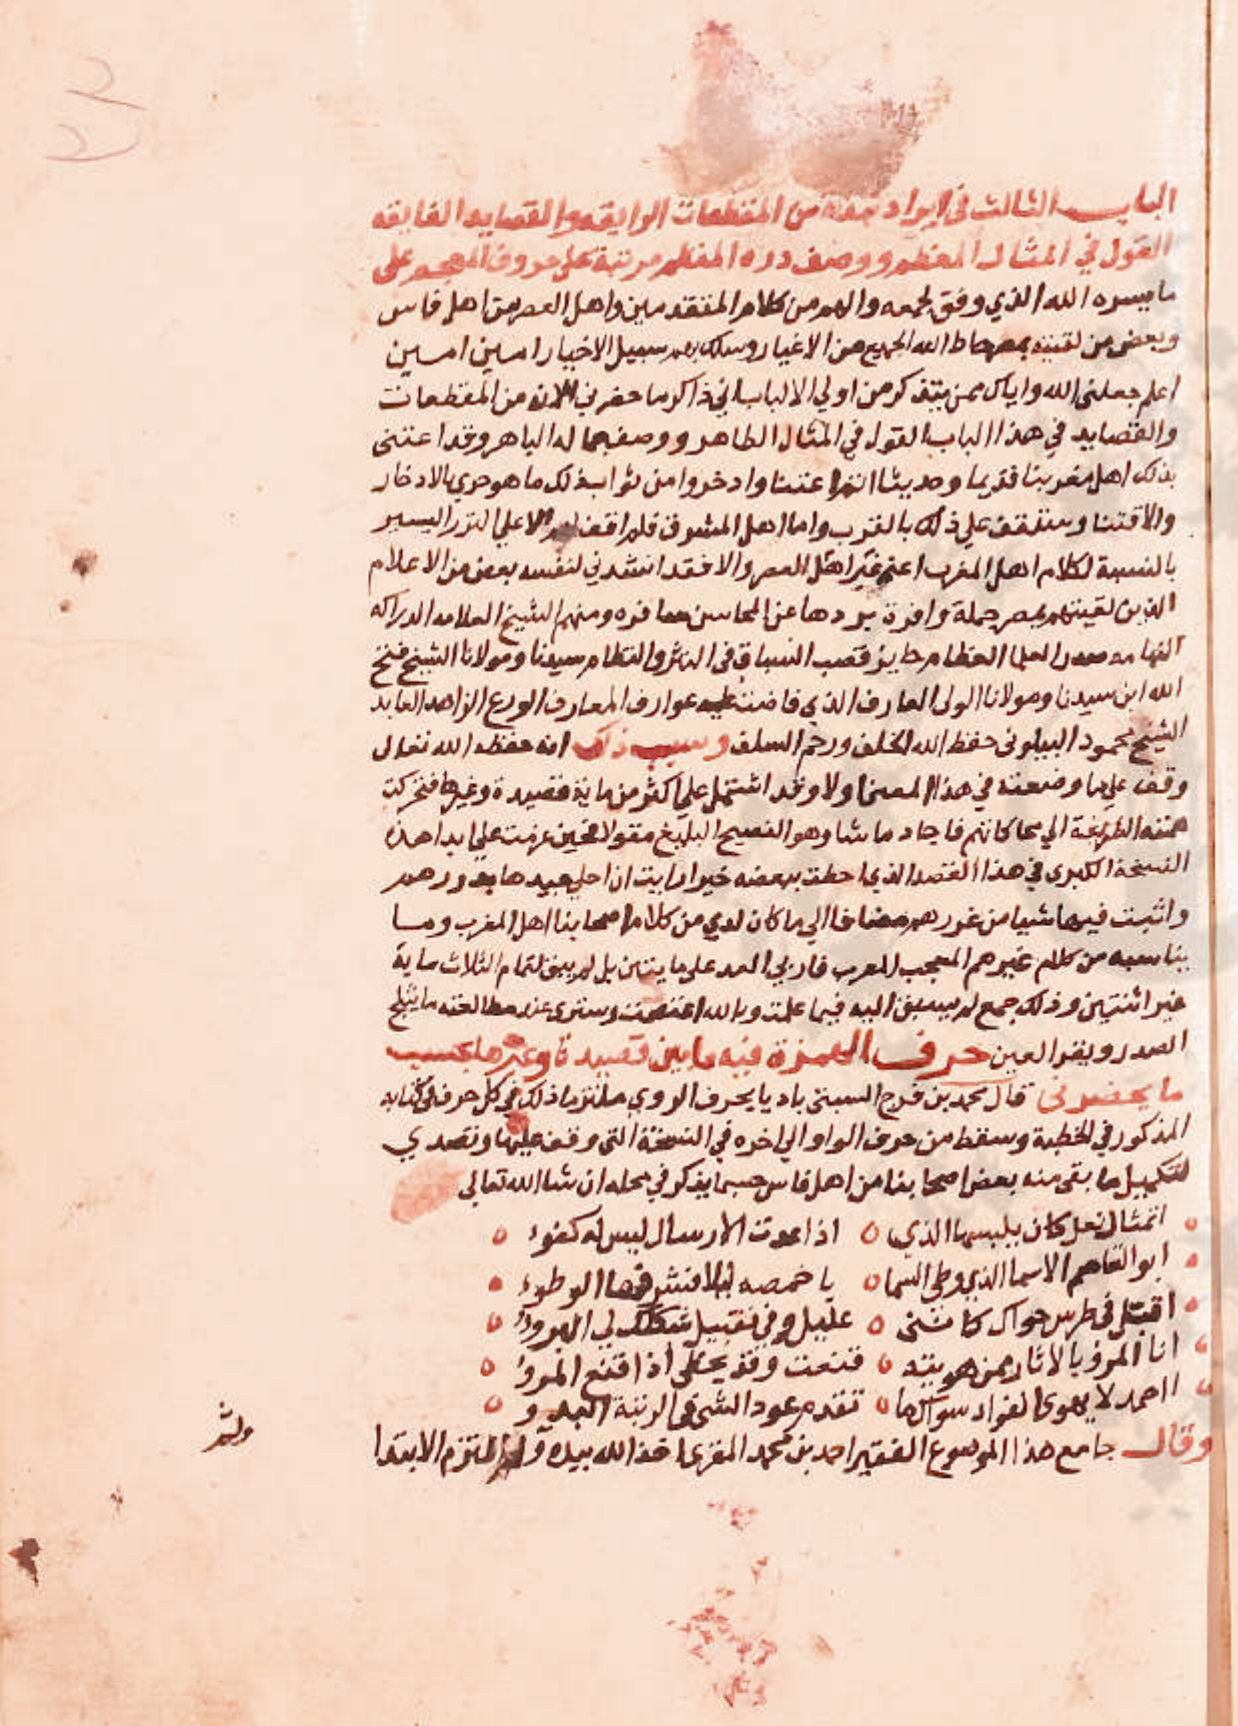 الباب الثالث في ايراد نبذة من المقطعات الرايقه والقصايد الفايقه
القول في المثال المعظم ووصف دره المنظم مرتبة على حروف المعجم على
ما يسره الله الذي وفق لجمعه والهم من كلام المتقدمين واهل العصر من اهل فاس
وبعض من لقيته بمصر حاط الله الجميع من الاغيار وسلك بهم سبيل الاخيار امين امين
اعلم جعلني الله واياك ممن يتذكر من اولي الالباب اني ذاكر ما حضرني الان من المقطعات
والقصايد في هذا الباب القول في المثال الطاهر ووصف جماله الباهر وقد اعتنى
بذلك اهل مغربنا قديما وحديثا اتم اعتنا وادخروا من ثواب ذلك ما هو حري بالادخار
والاقتنا وستقف على ذلك بالقرب واما اهل المشرق فلم اقف لهم الا على النزر اليسير
بالنسبة لكلام اهل المغرب اعني غير اهل العصر والا فقد انشدني لنفسه بعض من الاعلام
الذين لقيتهم بمصر جملة وافرة بردها عن المحاسن سافره ومنهم الشيخ العلامه الدراكه
الفهامه صدر العلما العظام حايز قصب السباق في النثر والنظام سيدنا ومولانا الشيخ فتح
الله ابن سيدنا ومولانا الولي العارف الذي فاضت عليه عوارف المعارف الورع الزاهد العابد
الشيخ محمود البيلوني حفظ الله الخلف ورحم السلف وسبب ذلك انه حفظه الله تعالى
وقف على ما وضعته في هذا المعنى اولا وقد اشتمل على اكثر من ماية قصيدة وغيرها فتحركت
همته الشريفة الي محاكاتهم فاجاد ما شا وهو الفصيح البليغ مقولا فحين عزمت على ابداء هذه
النسخة الكبرى في هذا القصد الذي احطت ببعضه خبرا رايت ان احلي جيدها بدررهم
واثبت فيها شيا من غررهم مضافا الى ما كان لدي من كلام اصحابنا اهل المغرب وما
يناسبه من كلام غيرهم المعجب المعرب فاربى العد على مايتين بل لم يبق لتمام الثلاث ماية
غير اثنتين وذلك جمع لم يسبق اليه فيما علمت وبالله اعتصمت وسترى عند مطالعته ما يثلج
الصدر ويقر العين حرف الهمزة فيه ما بين قصيدة وغيرها بحسب
ما يحضرني قال محمد بن فرج السبتي باديا بحرف الروي ملتزما ذلك في كل حرف في كتابه
المذكور في الخطبة وسقط من حرف الواو الي اخره في النسخة التي وقفت عليها وتصدي
لتكميل ما بقي منه بعض اصحابنا من اهل فاس حسبما يذكر في محله ان شا الله تعالى
اتمثال نعل كان يلبسها الذي اذا عدت الارسال ليس له كفوء
ابو القاسم الاسما الذي وطي السما باخمصه ليلا فشرفها الوطوء
اقبل في طرس حواك كانني عليل وفي تقبيل شكلك لي البروء
انا المرؤ بالاثار ممن هويته قنعت وقد يحظى اذا قنع المرؤ
ااحمد لا يهوى الفواد سواك ما تقدم عود الشي في الرتبة البدو
وقال جامع هذا الموضوع الفقير احمد بن محمد المقري اخذ الله بيده ولم التزم الابتدا
ولنذ